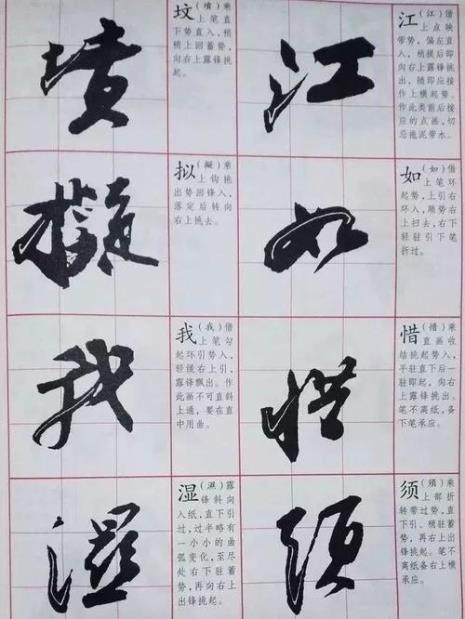 墳
坟(墳)乘
上笔直
下势直入,稍
稍上回蓄势,
向右上露锋挑
起。
江
江(江)借
上点映
带势,偏左直
入,稍挫后即
向右上露锋挑
出,随即应接
作上横起势。
作此类前后接
应的点画,切
忌拖泥带水。
擬
拟(擬)乘
上钩挑
出势回锋入,
落定后转向
右上挑去。
如
如(如)借
上笔环
起势,上引右
环入,顺势右
上扫去,右下
轻驻引下笔
折过。
我
我(我)借
上笔勾
起环引势入,
轻缓右上引,
露锋飘出。作
此画不可直斜
上通,要在直
中用曲。
惜
惜(惜)乘
直画收
结挑起势入,
平驻直下后一
驻即起,向右
上露锋挑出。
笔不离纸,备
下笔承应。
濕
湿(濕)露
锋斜向
入纸,直下引
过,过半略有
一小小的曲
弧变化,至尽
处右下驻蓄
势,再向右上
出锋挑起。
須
须(須)乘
上部折
转带过势,直
下引、稍驻蓄
势,再右上出
锋挑起。笔不
离纸备右上横
承应。